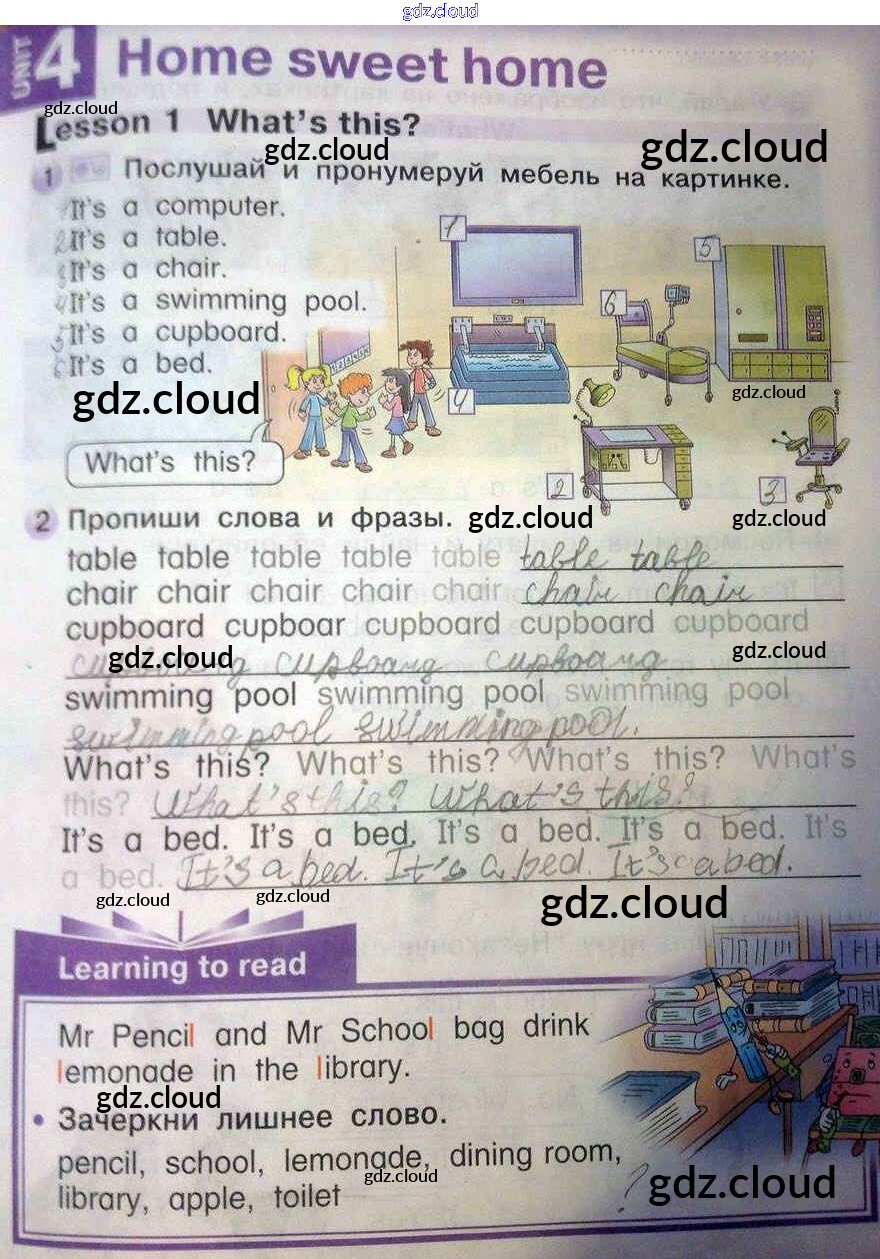 gdz.cloud
UNIT 4 Home sweet home
gdz.cloud
Lesson 1 What's this?
gdz.cloud
gdz.cloud
1 Послушай и пронумеруй мебель на картинке.
1 It's a computer.
2 It's a table.
3 It's a chair.
4 It's a swimming pool.
5 It's a cupboard.
6 It's a bed.
1
5
6
4
2
3
gdz.cloud
gdz.cloud
What's this?
2 Пропиши слова и фразы.
gdz.cloud
gdz.cloud
table table table table table table table
chair chair chair chair chair chair chair
cupboard cupboar cupboard cupboard cupboard
cupboang cupboang
gdz.cloud
gdz.cloud
swimming pool swimming pool swimming pool
swimming pool swimming pool.
What's this? What's this? What's this? What's
this? What's this? What's this?
It's a bed. It's a bed. It's a bed. It's a bed. It's
a bed. It's a bed. It's a bed. It's a bed.
gdz.cloud
gdz.cloud
gdz.cloud
Learning to read
Mr Pencil and Mr School bag drink
lemonade in the library.
gdz.cloud
• Зачеркни лишнее слово.
pencil, school, lemonade, dining room,
library, apple, toilet
?
gdz.cloud
gdz.cloud